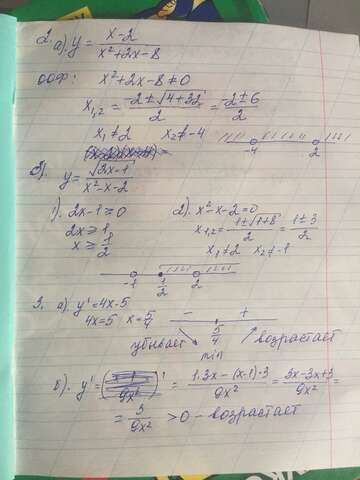 2. а). y = x-2 / x²+2x-8
ООФ: x²+2x-8≠0
x₁,₂ = -2±√4+32 / 2 = -2±6 / 2
x₁≠2 x₂≠-4
-4 2
y = √2x-1 / x²-x-2
1). 2x-1≥0 2). x²-x-2=0
2x≥1 x₁,₂ = 1±√1+8 / 2 = 1±3 / 2
x≥ 1/2 x₁≠2 x₂≠-1
-1 1/2 2
3. а). y' = 4x-5 - +
4x=5 x= 5/4 5/4
убывает min возрастает
в). y' = = 1·3x-(x-1)·3 / 9x² = 3x-3x+3 / 9x² =
= 3 / 9x² >0 - возрастает